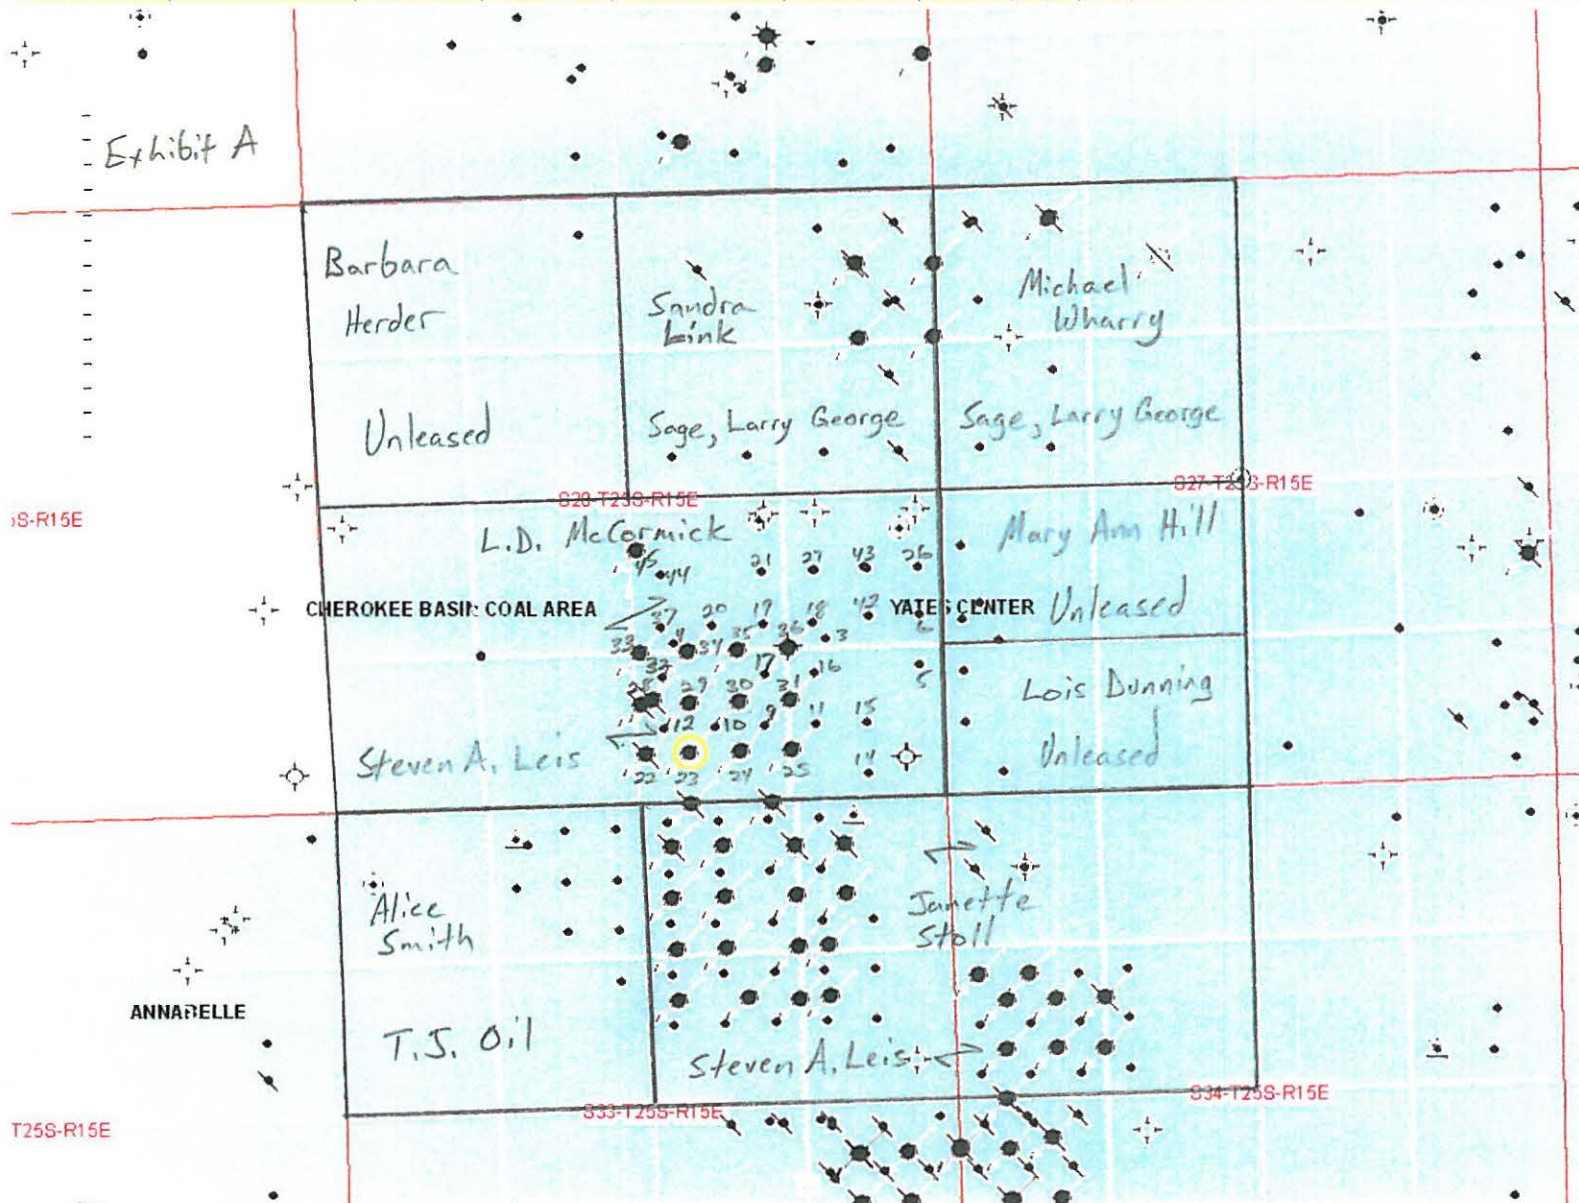 Exhibit A
Barbara
Herder
Unleased
Sandra
Link
Sage, Larry George
Michael
Wharry
Sage, Larry George
S-R15E
S28-T25S-R15E
S27-T25S-R15E
L.D. McCormick
Mary Ann Hill
Unleased
45
44
21
27
43
26
CHEROKEE BASIN COAL AREA
YATES CENTER
37
20
19
18
42
6
33
4
34
35
36
3
32
17
16
5
28
29
30
31
Lois Dunning
Unleased
12
10
9
11
15
Steven A. Leis
22
23
24
25
14
Alice
Smith
T.J. Oil
Janette
Stoll
Steven A. Leis
ANNABELLE
S33-T25S-R15E
S34-T25S-R15E
T25S-R15E